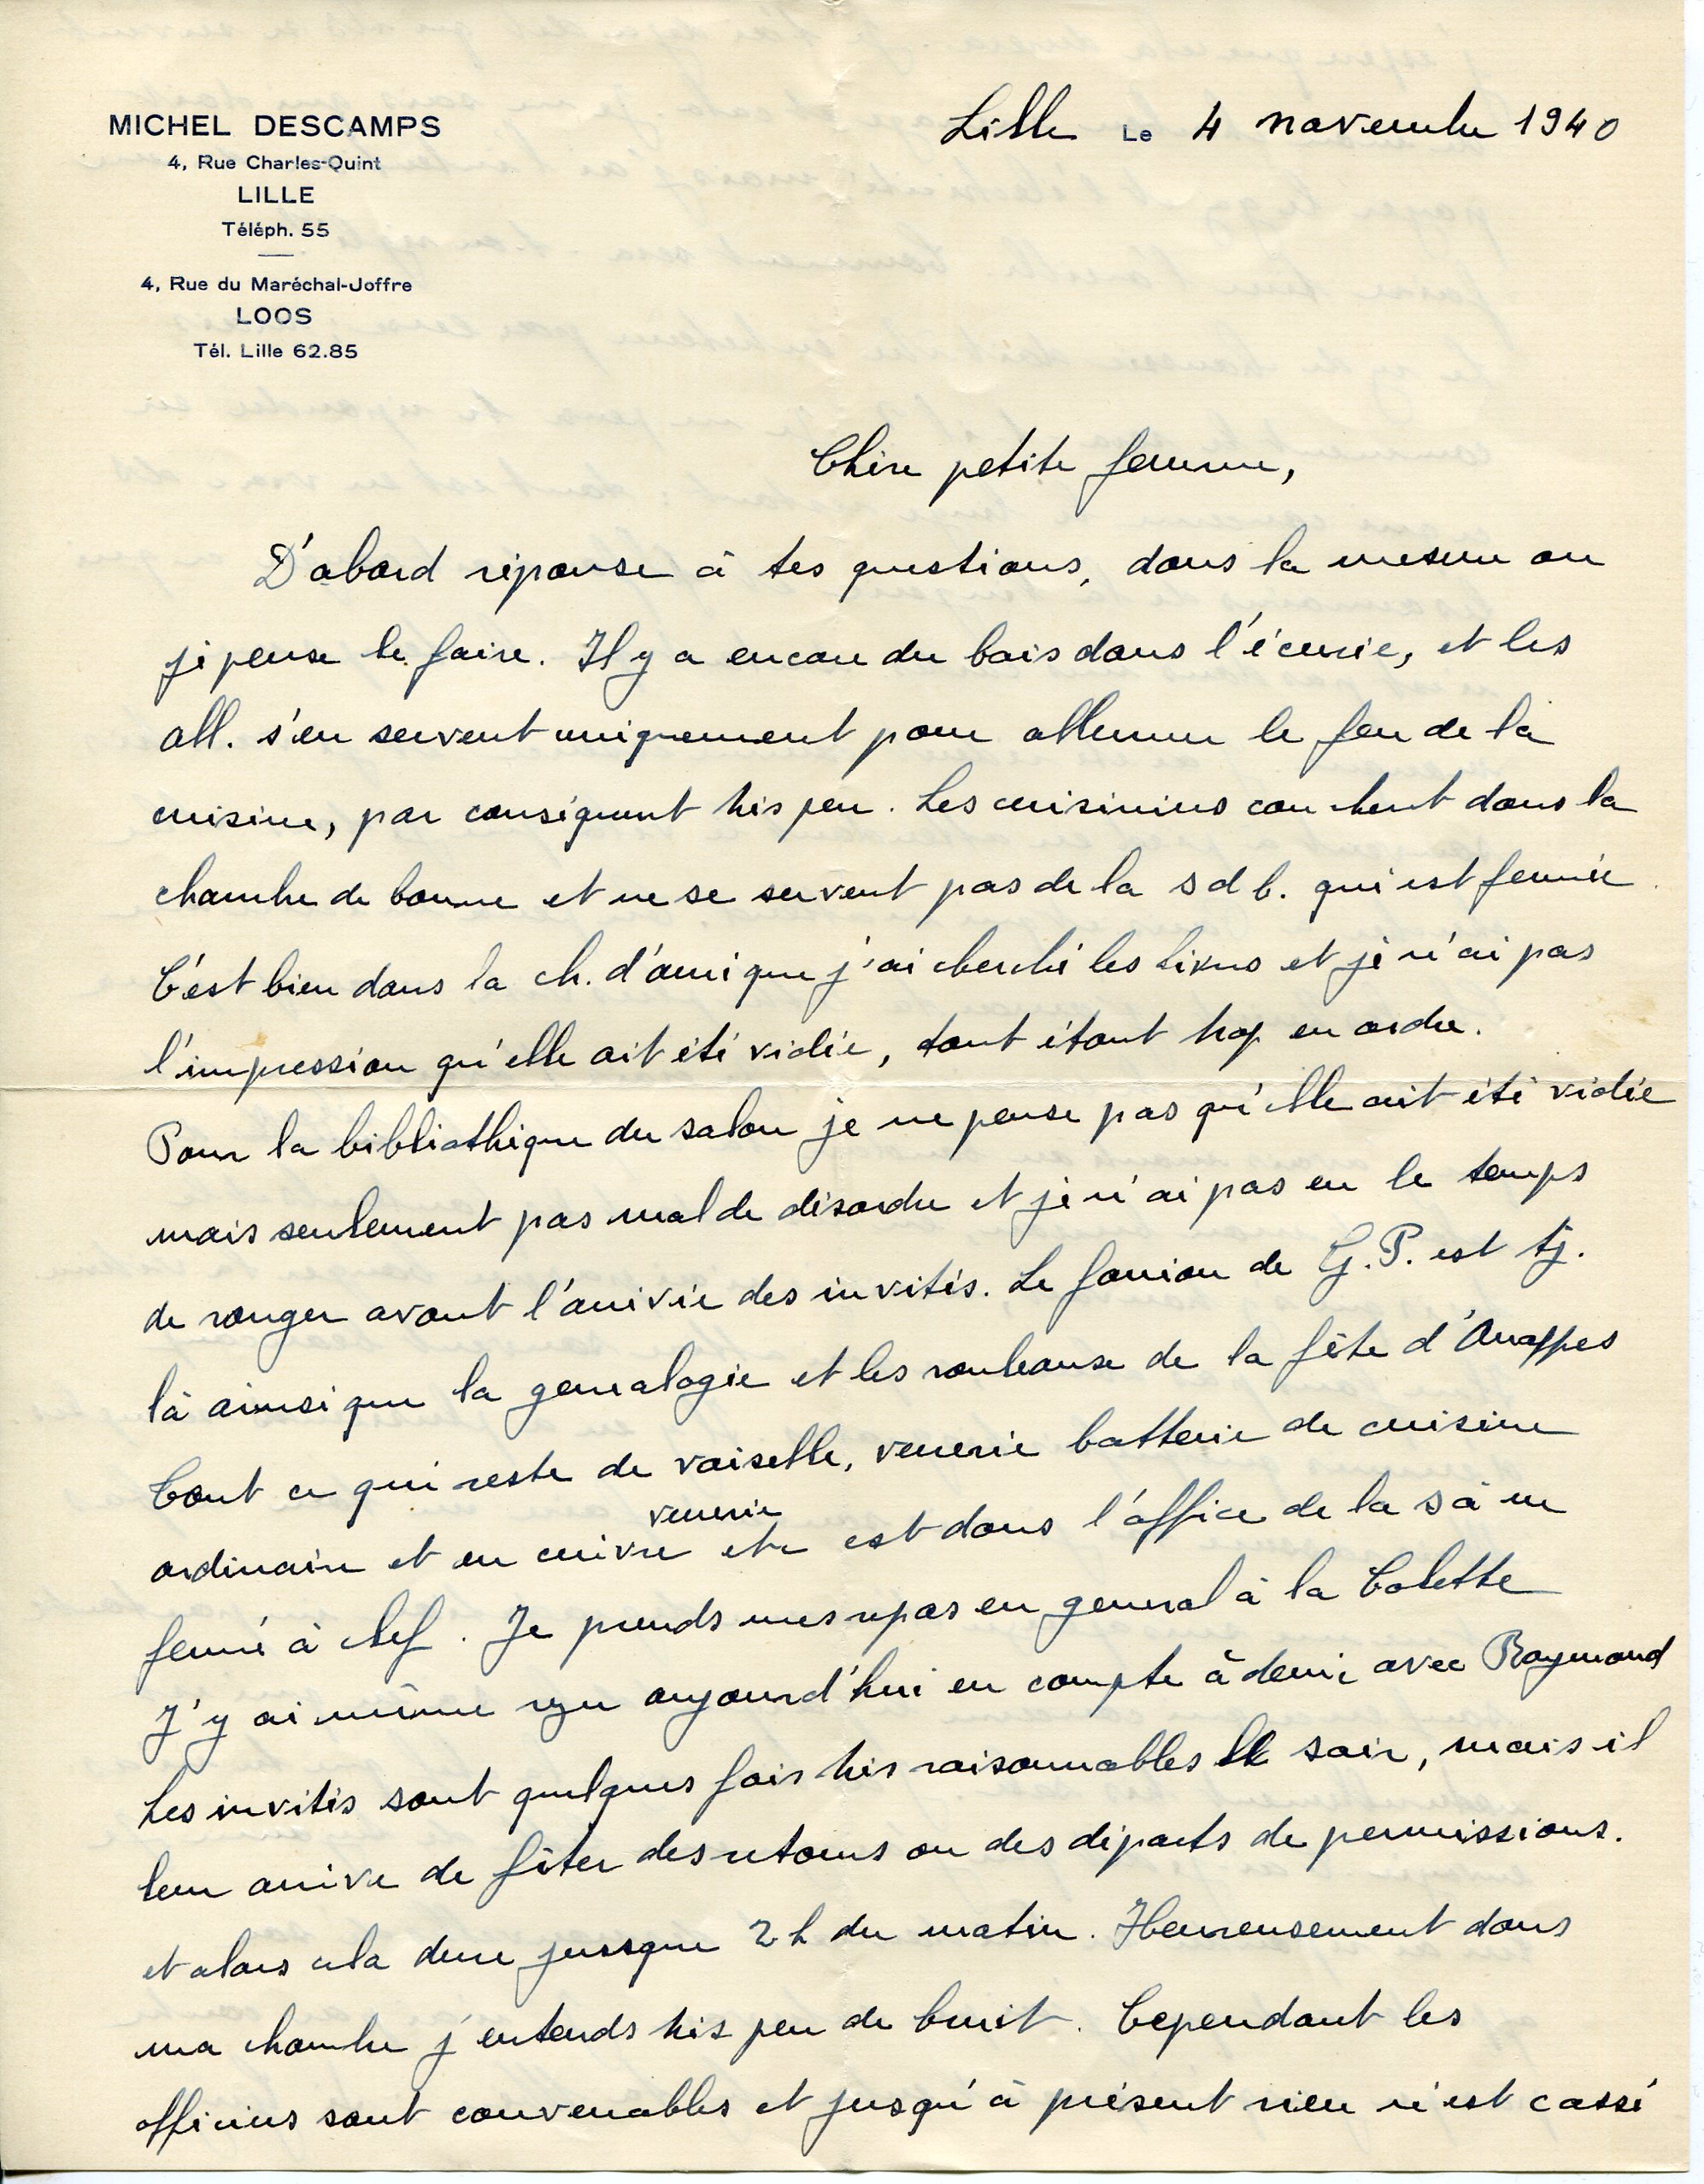 MICHEL DESCAMPS
4, Rue Charles-Quint
LILLE
Téléph. 55
4, Rue du Maréchal-Joffre
LOOS
Tél. Lille 62.85
Lille Le 4 novembre 1940
Chère petite femme,
D'abord réponse à tes questions, dans la mesure ou
je peux le faire. Il y a encore du bois dans l'écurie, et les
all. s'en servent uniquement pour allumer le feu de la
cuisine, par conséquent très peu. Les cuisiniers couchent dans la
chambre de bonne et ne se servent pas de la s d b. qui est fermée
C'est bien dans la ch. d'ami que j'ai cherché les livres et je n'ai pas
l'impression qu'elle ait été vidée, tout étant trop en ordre.
Pour la bibliothèque du salon je ne pense pas qu'elle ait été vidée
mais seulement pas mal de désordre et je n'ai pas eu le temps
de ranger avant l'arrivée des invités. Le fanion de G.P. est tj.
là ainsi que la genealogie et les rouleaux de la fête d'Anappes
Tout ce qui reste de vaiselle, verrerie batterie de cuisine
ordinaire et en cuivre verrerie etc est dans l'office de la s à m
fermé à clef. Je prends mes repas en general à la Colette
J'y ai même reçu aujourd'hui en compte à demi avec Raymond
Les invités sont quelques fois très raisonnables le soir, mais il
leur arrive de fêter des retours ou des départs de permissions.
et alors cela dure jusque 2 h du matin. Heureusement dans
ma chambre j'entends très peu de bruit. Cependant les
officiers sont convenables et jusqu'à présent rien n'est cassé